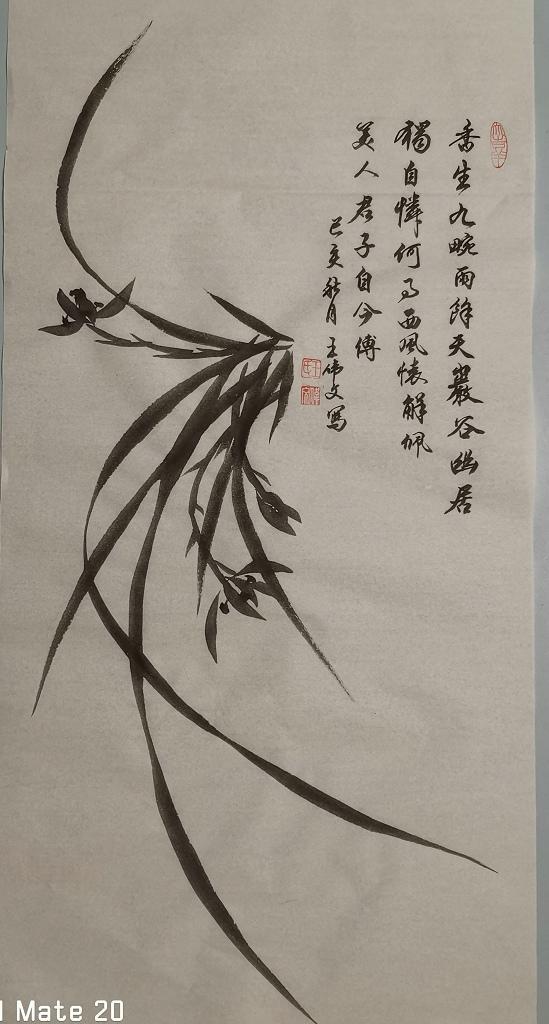 香生九畹雨餘天巖谷幽居
獨自憐何事西風懷解佩
美人君子自今傳
己亥秋月王偉文寫
Mate 20